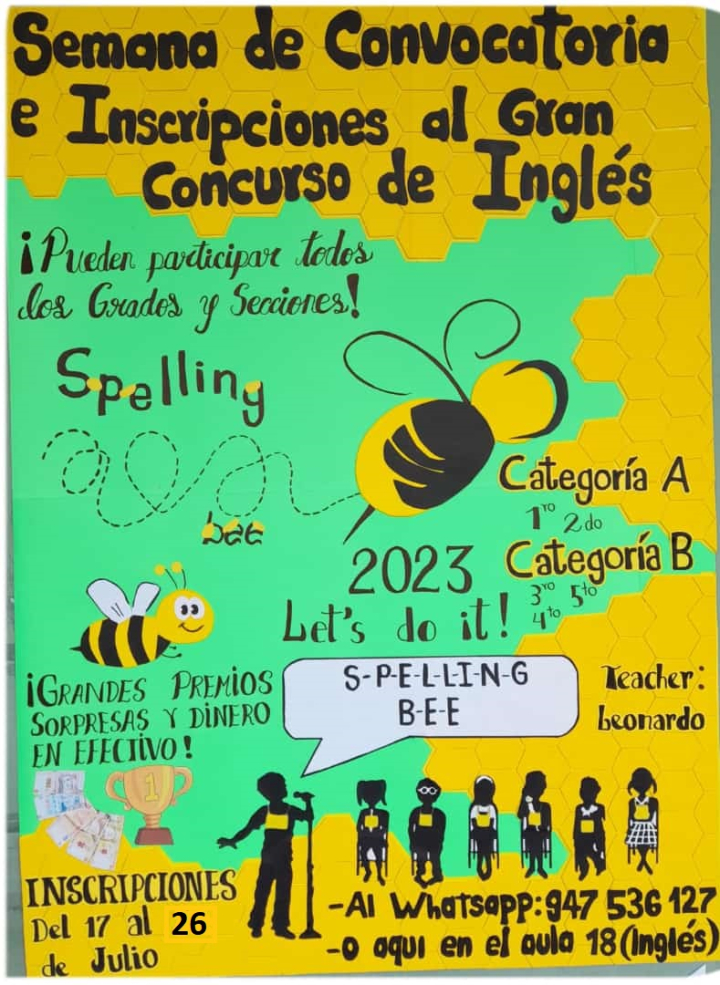 Semana de Convocatoria
e Inscripciones al Gran
Concurso de Inglés
¡Pueden participar todos
los Grados y Secciones!
Spelling
bee
Categoría A
1ro 2do
2023
Categoría B
3ro 5to
4to
Let's do it!
¡GRANDES PREMIOS
SORPRESAS Y DINERO
EN EFECTIVO!
S-P-E-L-L-I-N-G
B-E-E
Teacher:
Leonardo
1
INSCRIPCIONES
Del 17 al 26
de Julio
-Al Whatsapp: 947 536 127
-o aquí en el aula 18 (Inglés)